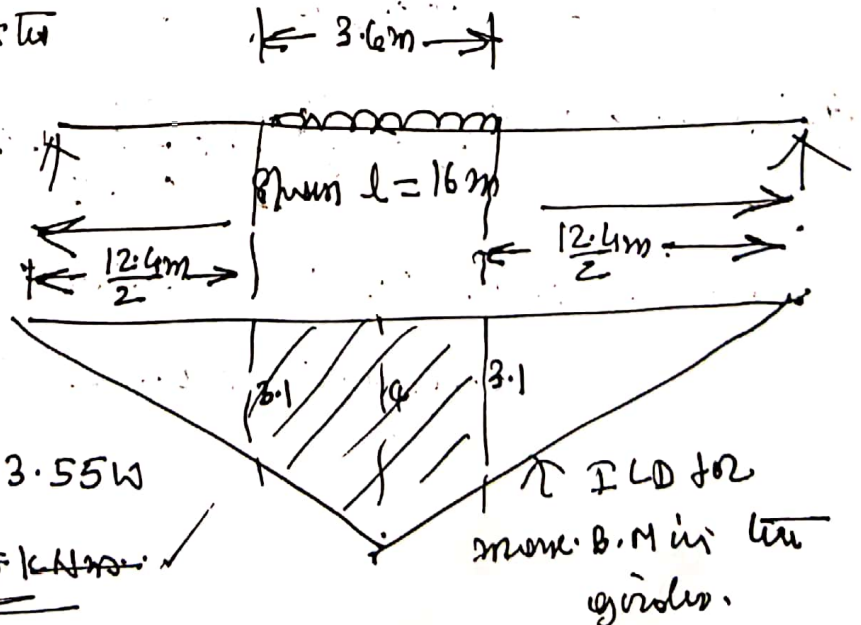 3.6m
span l = 16m
12.4m
2
12.4m
2
3.1
4
3.1
3.55W
ILD for
max. B.M in
girder.